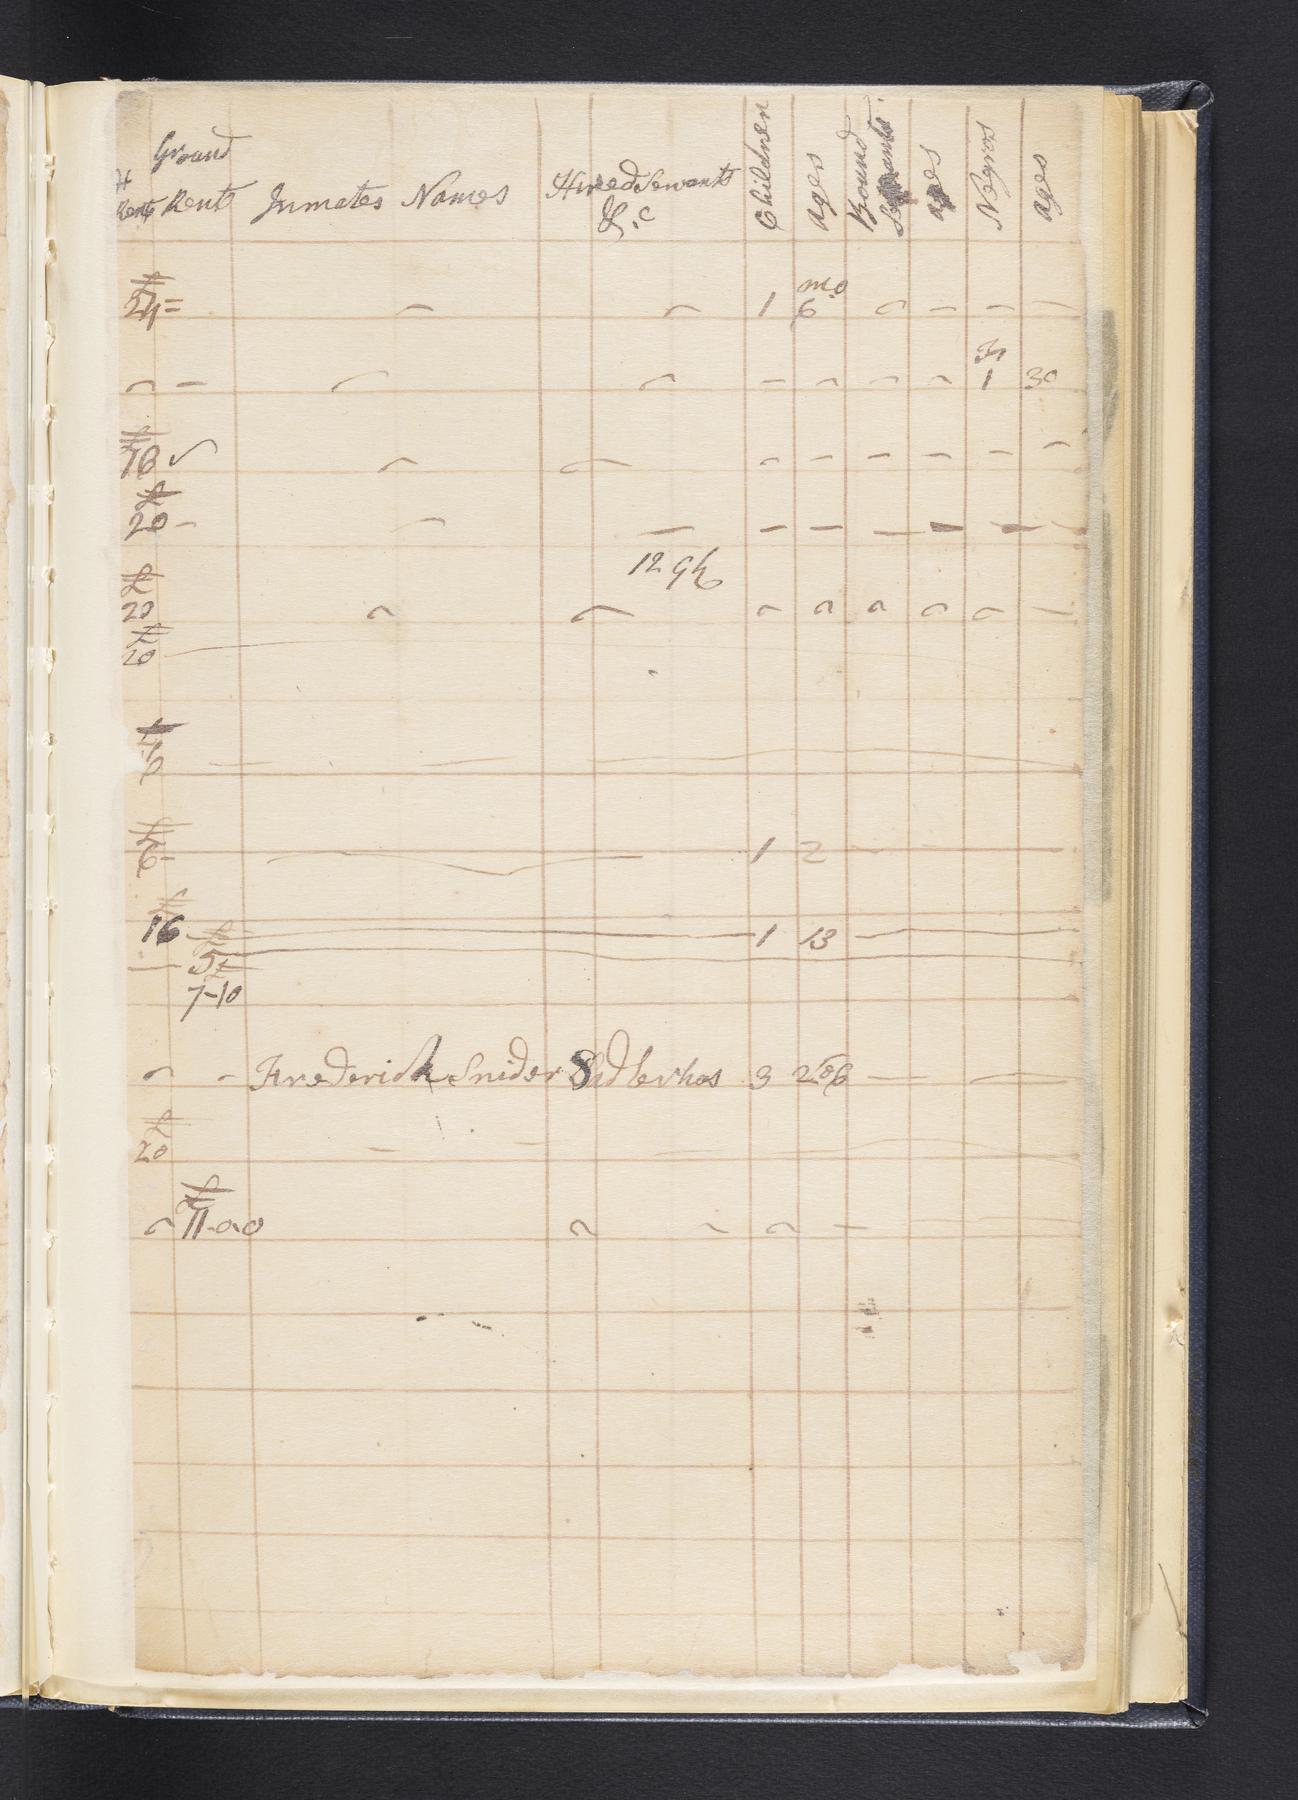 H Rent Ground Rent Inmates Names Hired Servants &.c Children ages Bound Servants ages Negros ages
£ 24= 1 mo 6
1 30
£ 18
£ 20 -
12 9
£ 20
£ 20
£ 6
£ 6- 1 2
£ 16 1 13
£ 5
£ 7-10
- Frederick Snider Sadler has 3 2 to 6
£ 20
£ 11-0-0